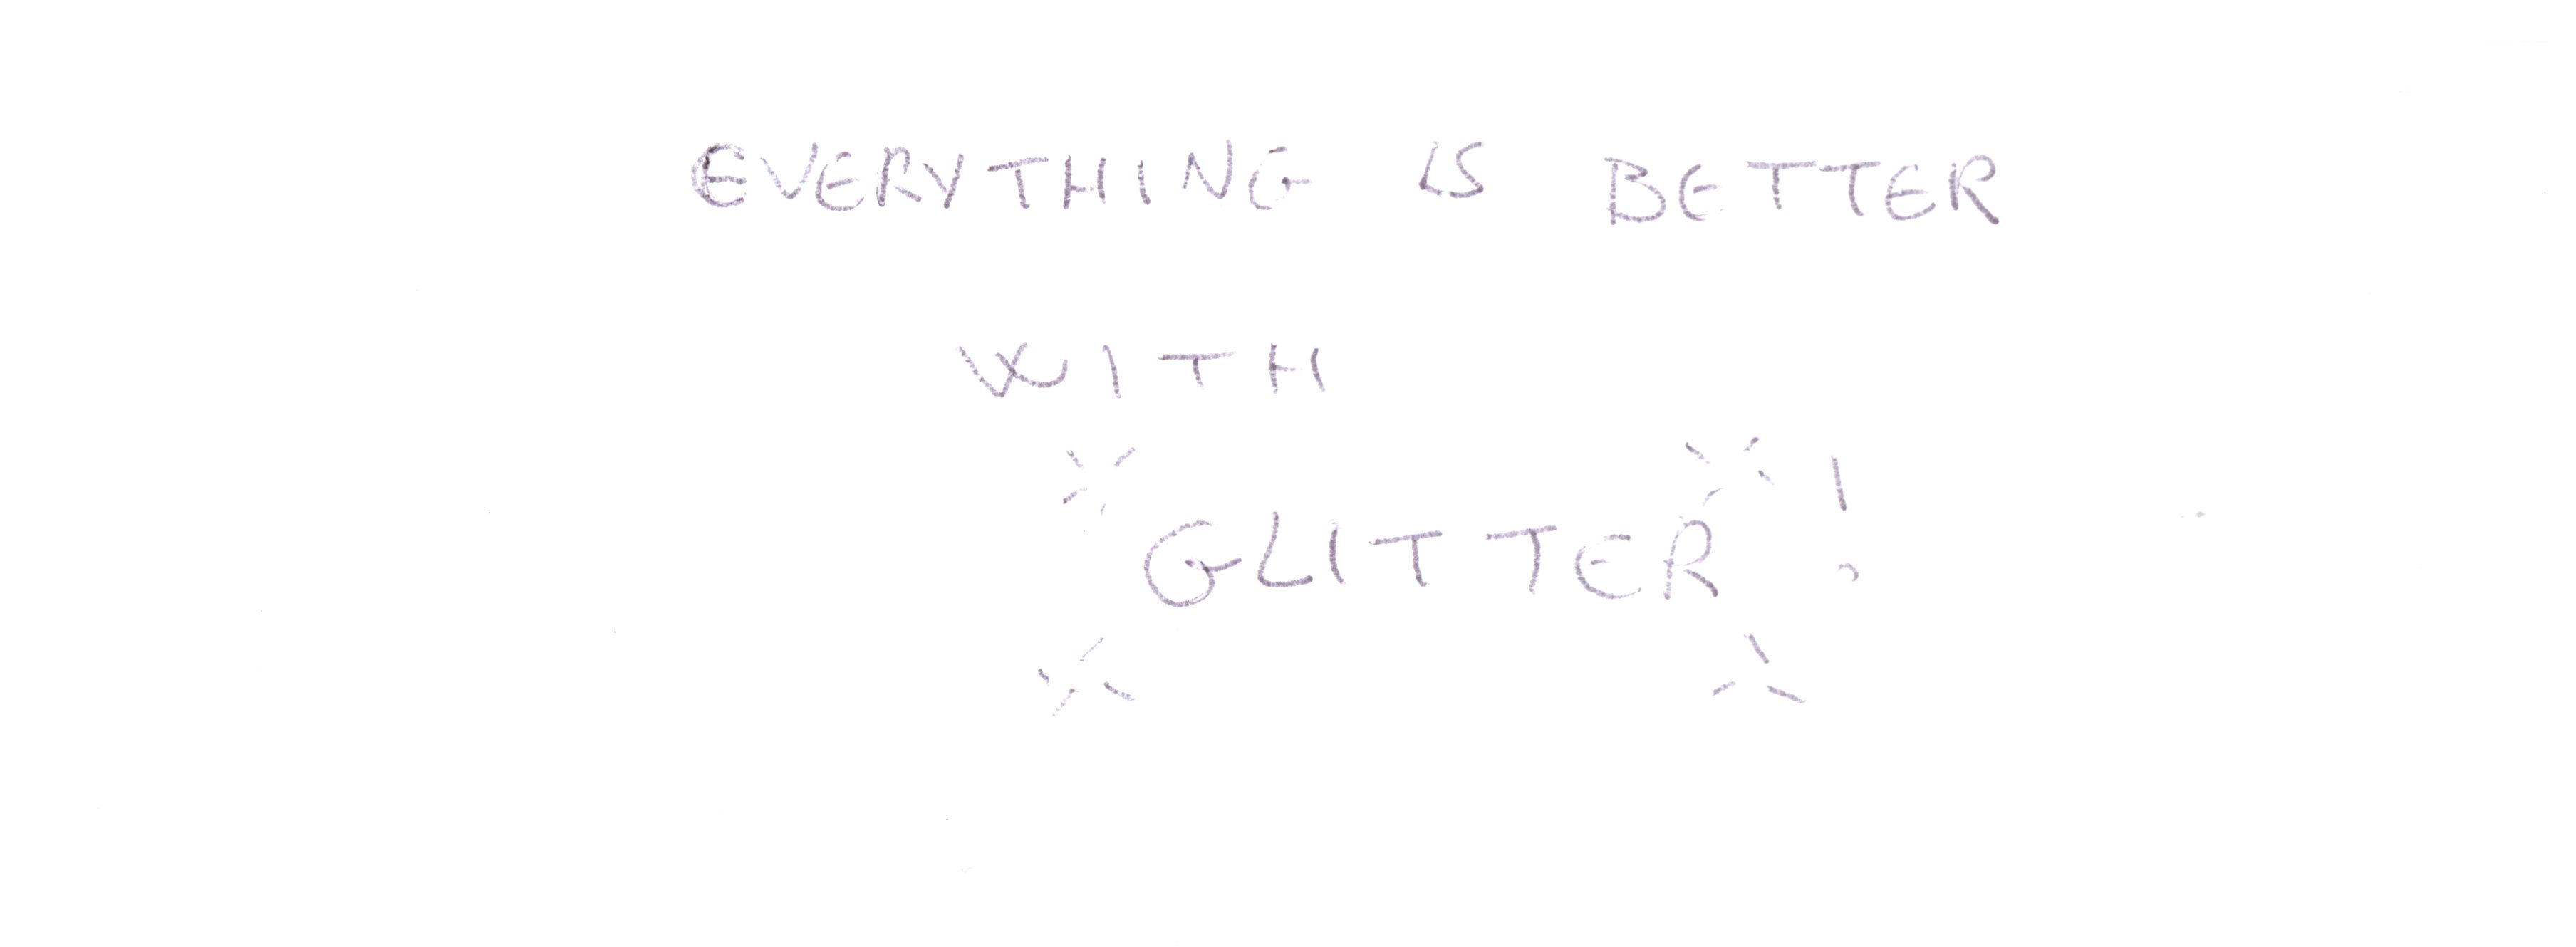 EVERYTHING IS BETTER
WITH
GLITTER!